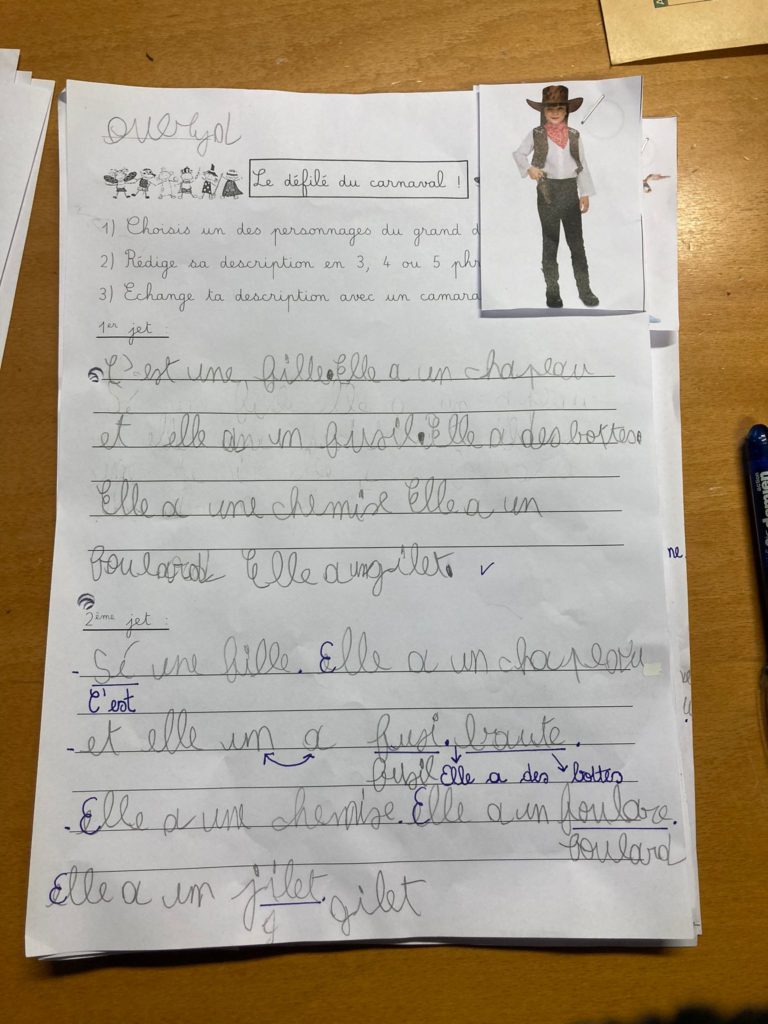 Le défilé du carnaval !
1) Choisis un des personnages du grand d
2) Rédige sa description en 3, 4 ou 5 phr
3) Echange ta description avec un camara
1er jet :
C'est une fille. Elle a un chapeau
et elle a un fusil. Elle a des bottes.
Elle a une chemise Elle a un
foulard Elle a un gilet.
2ème jet :
- Sé une fille. Elle a un chapeau
C'est
- et elle un a fusi. baute.
fusil Elle a des bottes
- Elle a une chemise. Elle a un foulare.
foulard
Elle a un jilet. gilet
g
ne